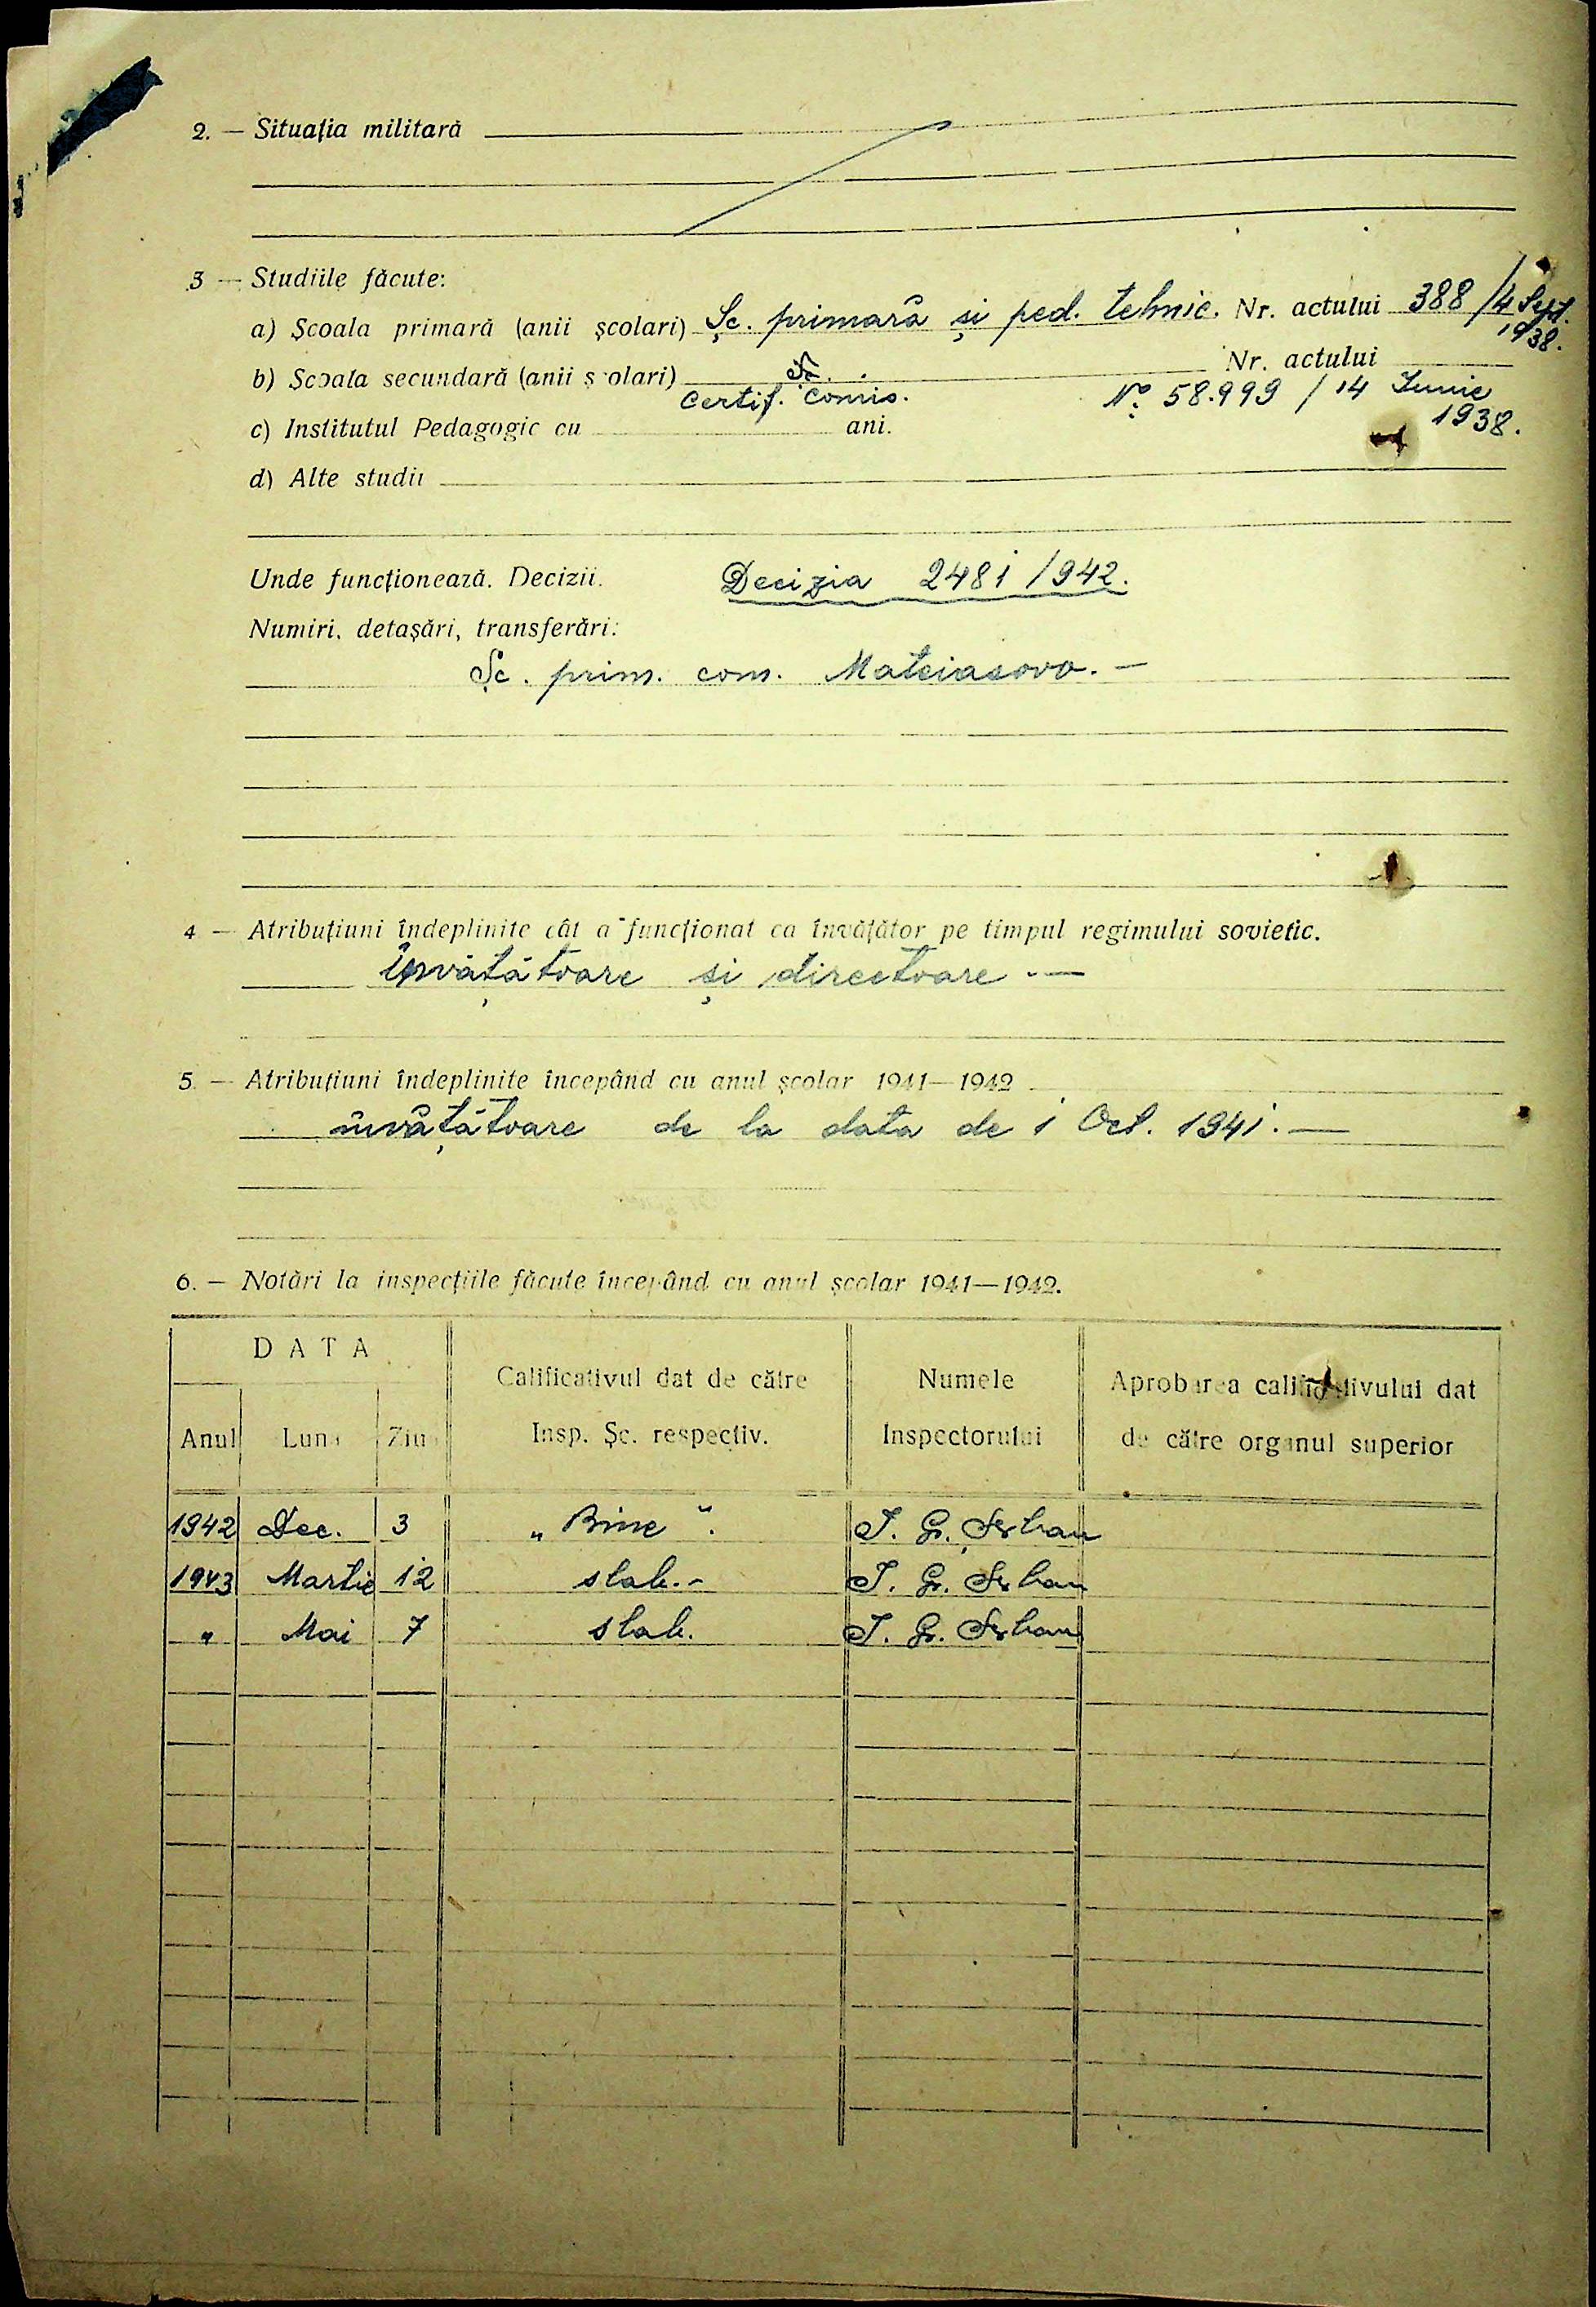 2. — Situația militară
3 — Studiile făcute:
a) Școala primară (anii școlari) Șc. primară și ped. tehnic. Nr. actului 388/4 Sept. 1938.
b) Școala secundară (anii școlari) Nr. actului
Certif. Nº 58.999 / 14 Iunie 1938.
c) Institutul Pedagogic cu ani.
d) Alte studii
Unde funcționează. Decizii. Decizia 2481/942.
Numiri, detașări, transferări:
Șc. prim. com. Mateiasovo. —
4 — Atribuțiuni îndeplinite cât a funcționat ca învățător pe timpul regimului sovietic.
Învățătoare și directoare. —
5. — Atribuțiuni îndeplinite începând cu anul școlar 1941—1942
învățătoare de la data de 1 Oct. 1941. —
6. — Notări la inspecțiile făcute începând cu anul școlar 1941—1942.
DATA
Calificativul dat de către Numele Aprobarea calificativului dat
Anul Luna Ziua Insp. Șc. respectiv. Inspectorului de către organul superior
1942 Dec. 3 „Bine". I. Gr. Șerban
1943 Martie 12 slab. - I. Gr. Șerban
" Mai 7 slab. I. Gr. Șerban